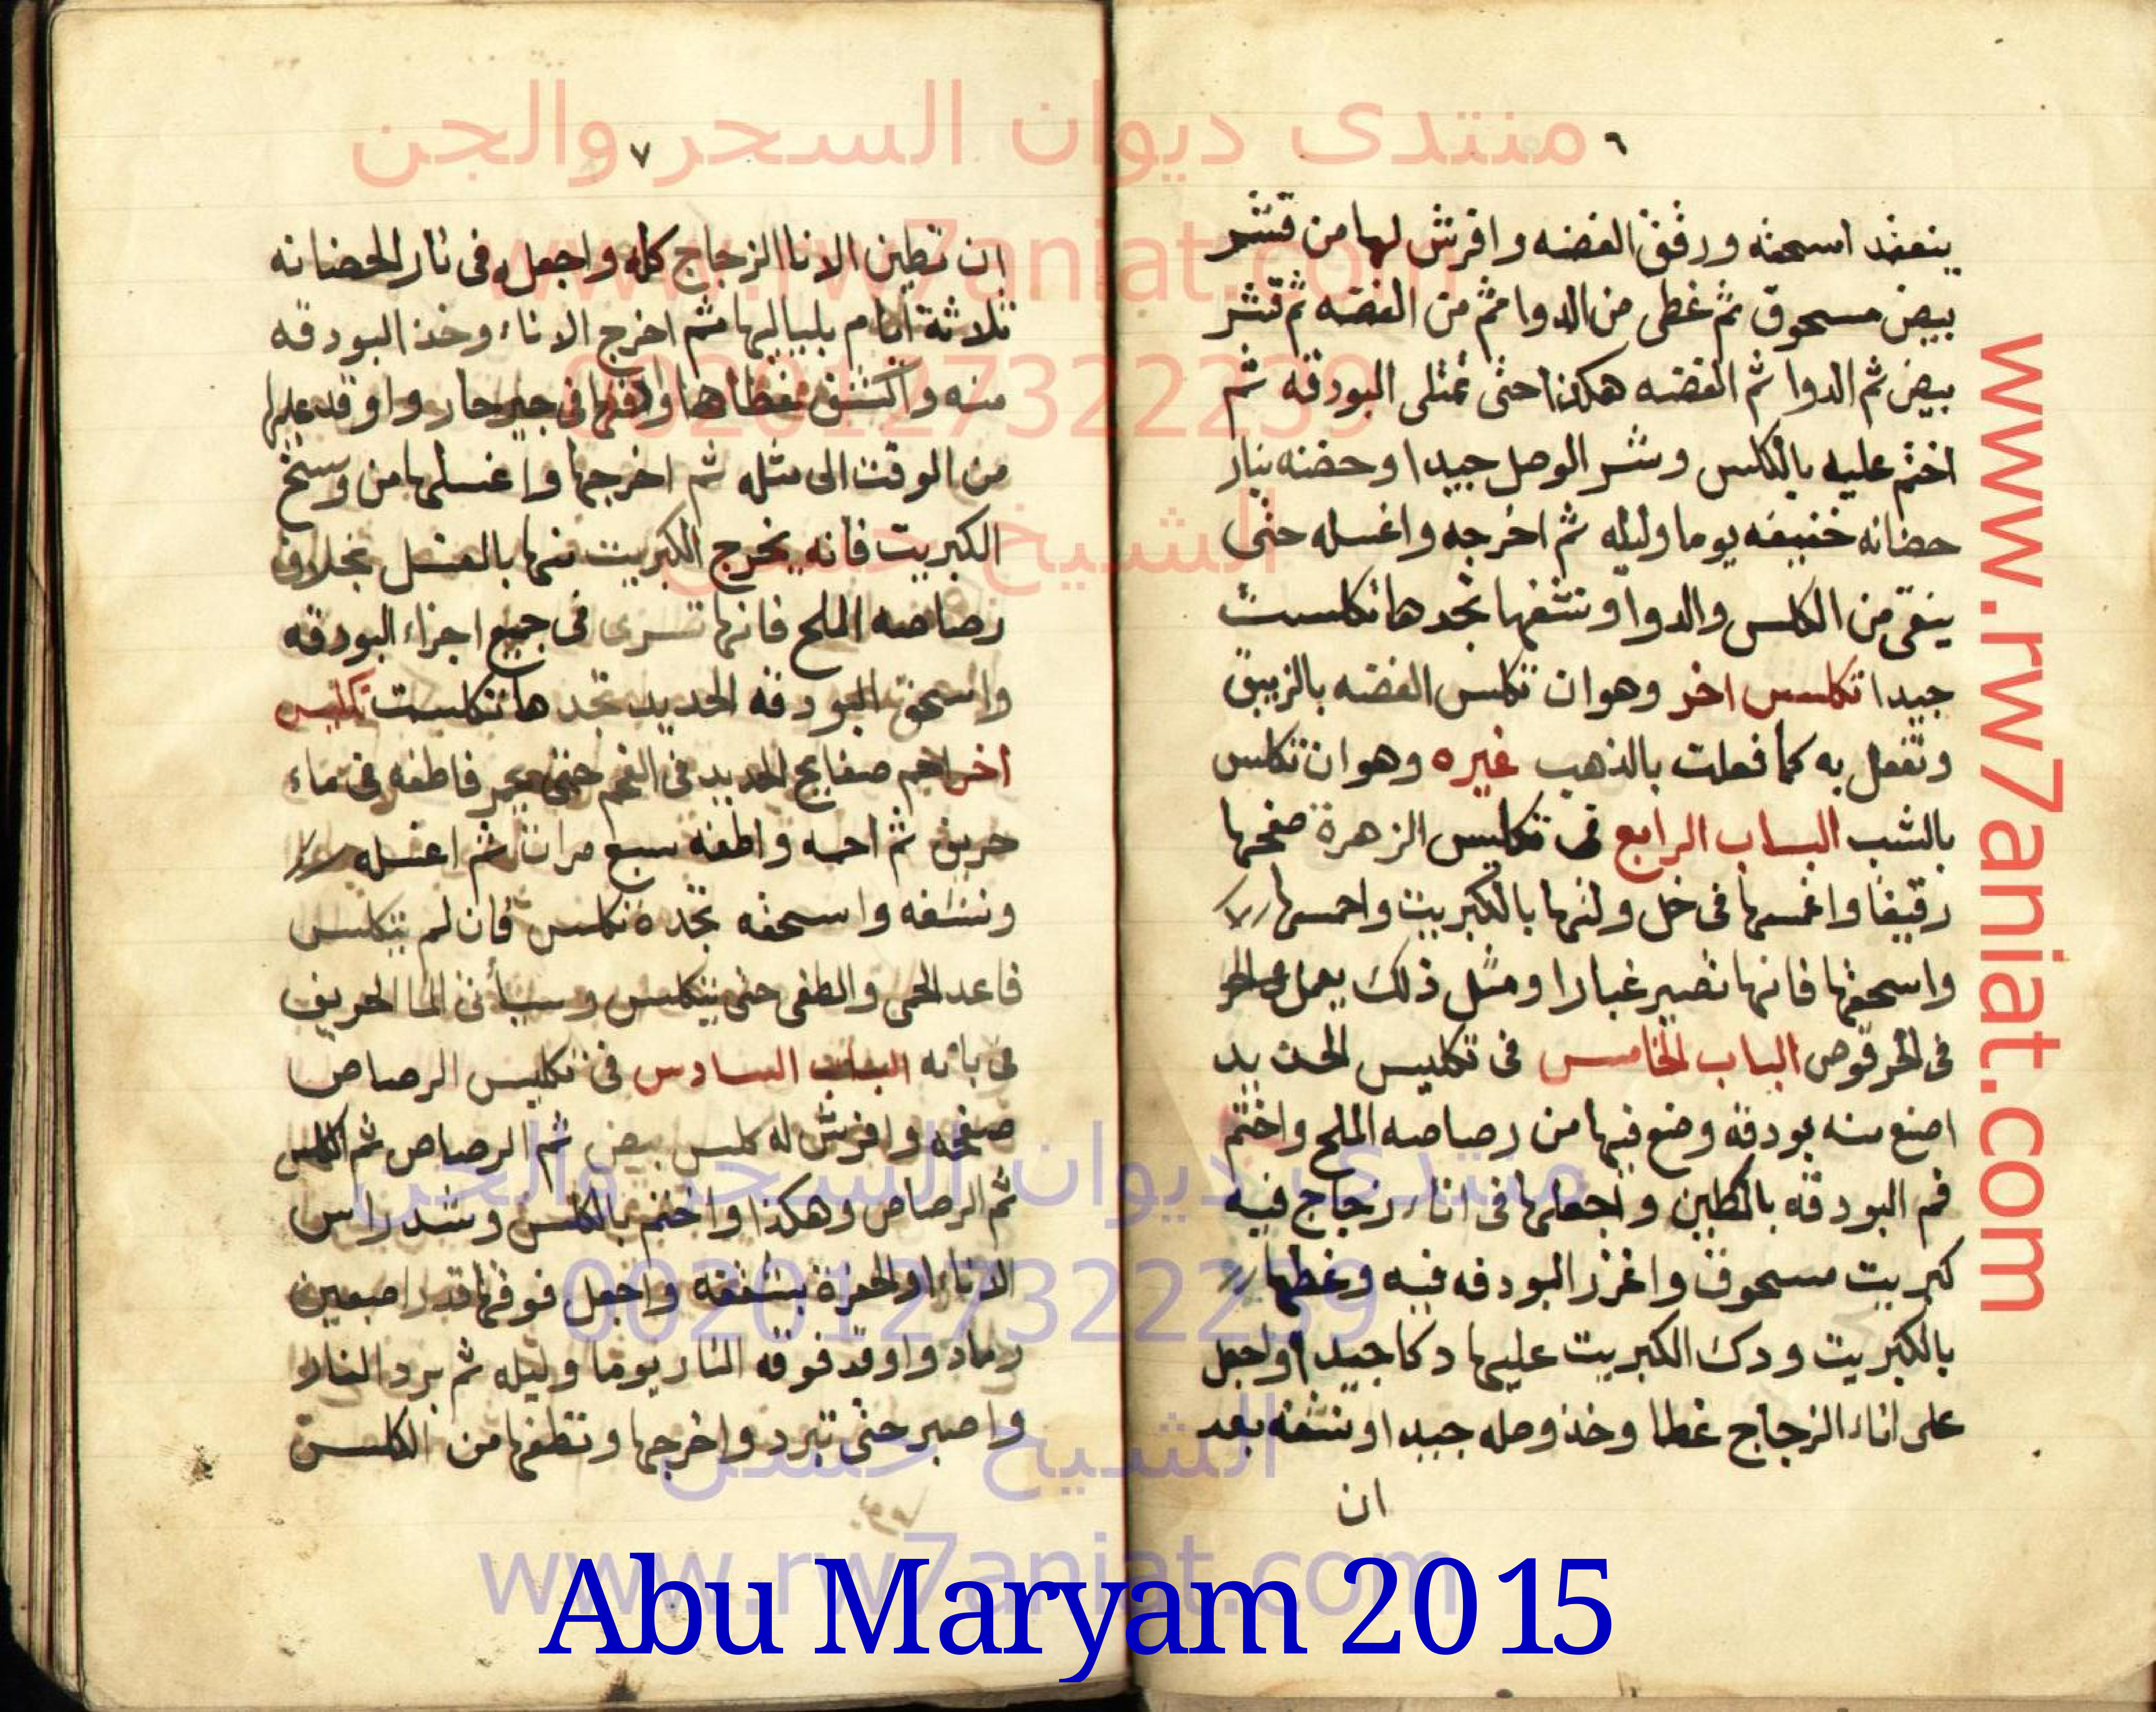 منتدى ديوان السحر والجن
www.rw7aniat.com
00201273222239
الشيخ حسن
٦
ينعقد اسحقه ورقق الفضه وافرش لها من قشر
بيض مسحوق ثم غطى من الدوا ثم من الفضه ثم قشر
بيض ثم الدوا ثم الفضه هكذا حتى تمتلى البودقه ثم
اختم عليه بالكلس وشد الوصل جيدا وحضنه بنار
حضانه خفيفه يوما وليله ثم اخرجه واغسله حتى
ينقى من الكلس والدوا ونشفها تجدها تكلست
جيدا تكليس اخر وهو ان تكلس الفضه بالزيبق
وتفعل به كما فعلت بالذهب غيره وهو ان تكلس
بالشب الباب الرابع فى تكليس الزهرة صفحها
رقيقا واغمسها فى خل ولتها بالكبريت واحمسها
واسحقها فانها تصير غبارا ومثل ذلك يعمل
فى الحرقوص الباب الخامس فى تكليس الحديد
اصنع منه بودقه وضع فيها من رصاصه الملح واختم
فم البودقه بالطين واجعلها فى اناء زجاج فيه
كبريت مسحوق واغرز البودقه فيه وغطها
بالكبريت ودك الكبريت عليها دكا جيدا واجعل
على اناء الزجاج غطا وخذ وصله جيدا ونشفه بعد
ان
٧
ان تطين الانا الزجاج كله واجعله فى نار الحضانه
ثلاثة ايام بلياليها ثم اخرج الاناء وخذ البودقه
منه واكشف غطاها وادفنها فى جير حار واوقد عليها
من الوقت الى مثله ثم اخرجها واغسلها من وسخ
الكبريت فانه يخرج الكبريت منها بالغسل بخلاف
رصاصه الملح فانها تسرى فى جميع اجزاء البودقه
واسحق البودقه الحديد تجدها تكلست تكليس
اخر احم صفايح الحديد فى الفحم حتى يحمر فاطفه فى ماء
حريف ثم احمه واطفه سبع مرات ثم اغسله
ونشفه واسحقه تجده تكلس فان لم يتكلس
فاعد الحمى والطفى حتى يتكلس وسيأتى الما الحريف
فى بابه الباب السادس فى تكليس الرصاص
صفحه وافرش له كلس بيض ثم الرصاص ثم الكلس
ثم الرصاص وهكذا واختم بالكلس وشد راس
الاناء او الحفرة بشقفه واجعل فوقها قدر اصبعين
رماد واوقد فوقه النار يوما وليله ثم برد النار
واصبر حتى تبرد واخرجها ونظفها من الكلس
www.rw7aniat.com
منتدى ديوان السحر والجن
00201273222239
الشيخ حسن
www.rw7aniat.com
Abu Maryam 2015